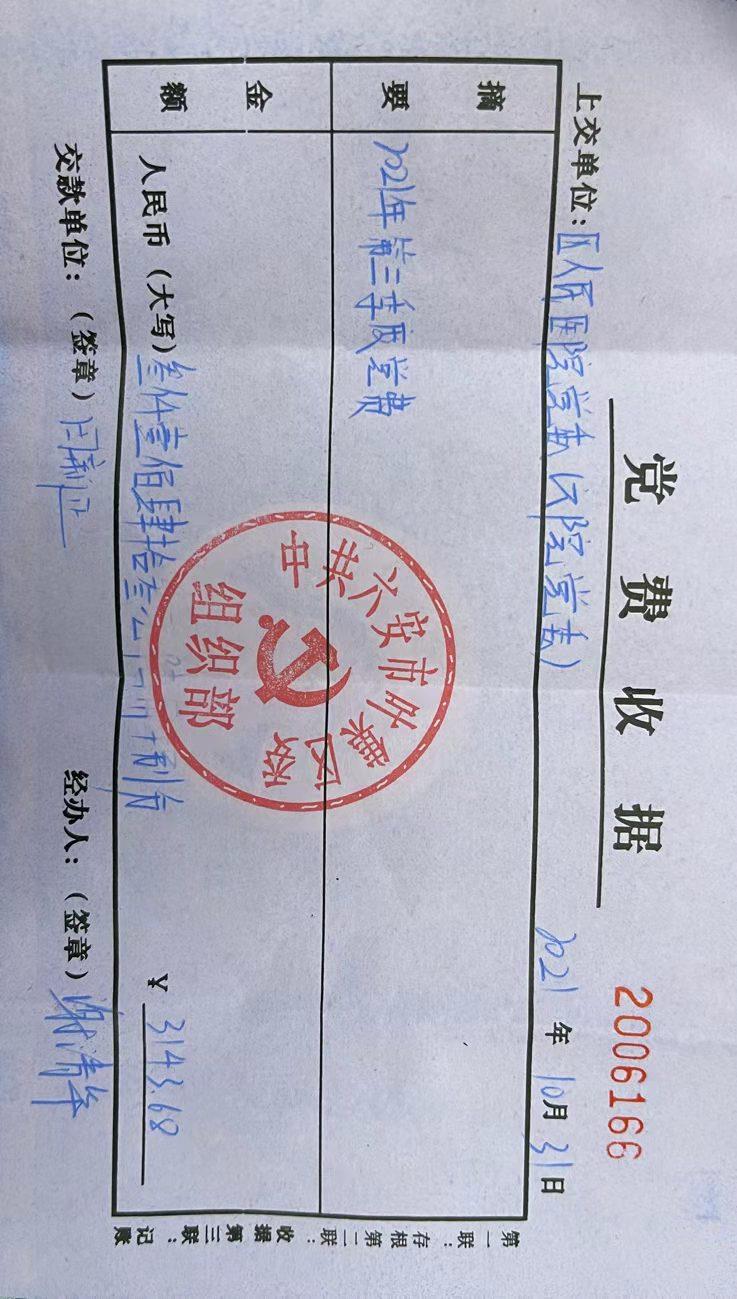 党费收据
2006166
上交单位：区人民医院党委（医院党委）
2021年10月31日
摘要
2021年第三季度党费
金额
人民币（大写）叁仟壹佰肆拾叁
￥3143.68
交款单位：（签章）
经办人：（签章）
第一联：存根第二联：收据第三联：记账
中共六安市叶集区委
组织部